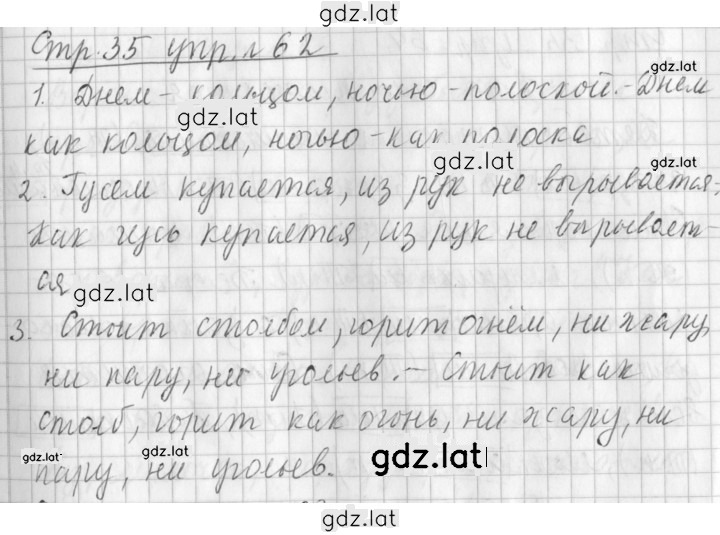 gdz.lat
Стр. 35 упр. № 62
gdz.lat
1. Днем - кольцом, ночью - полоской. - Днём
gdz.lat
как кольцом, ночью - как полоска
gdz.lat
gdz.lat
2. Гусем купается, из рук не вырывается.
Как гусь купается, из рук не вырывает-
ся
gdz.lat
3. Стоит столбом, горит огнём, ни жару,
ни пару, ни угольев. - Стоит как
столб, горит как огонь, ни жару, ни
gdz.lat
gdz.lat
пару, ни угольев.
gdz.lat
gdz.lat